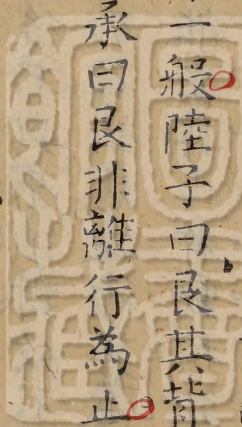 一般陸子曰艮其背
承曰艮非離行為止